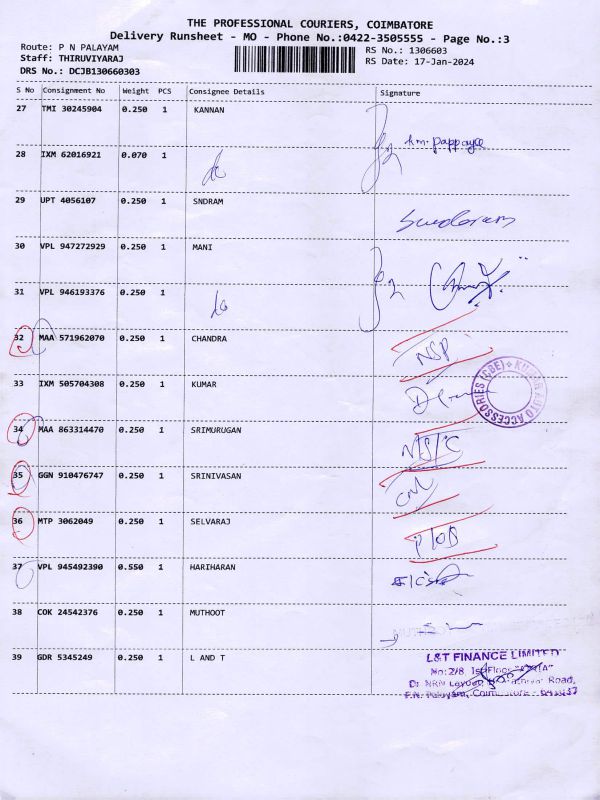 THE PROFESSIONAL COURIERS, COIMBATORE
Delivery Runsheet - MO - Phone No.:0422-3505555 - Page No.:3
Route: P N PALAYAM
RS No.: 1306603
Staff: THIRUVIYARAJ
RS Date: 17-Jan-2024
DRS No.: DCJB130660303
S No Consignment No Weight PCS Consignee Details Signature
27 TMI 30245904 0.250 1 KANNAN
28 IXM 62016921 0.070 1
29 UPT 4056107 0.250 1 SNDRAM
Sundaram
30 VPL 947272929 0.250 1 MANI
31 VPL 946193376 0.250 1
32 MAA 571962070 0.250 1 CHANDRA
NSP
33 IXM 505704308 0.250 1 KUMAR
KUMAR AUTO ACCESSORIES (CBE)
34 MAA 863314470 0.250 1 SRIMURUGAN
N/S/C
35 GGN 910476747 0.250 1 SRINIVASAN
36 MTP 3062049 0.250 1 SELVARAJ
37 VPL 945492390 0.550 1 HARIHARAN
38 COK 24542376 0.250 1 MUTHOOT
39 GDR 5345249 0.250 1 L AND T
L&T FINANCE LIMITED
No:2/8, 1st Floor
Road,
P.N. Palayam, Coimbatore